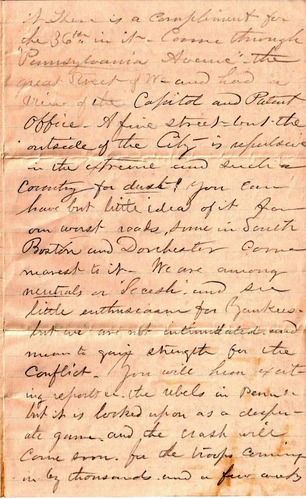 it There is a compliment for
the 36th in it - Came through
Pennsylvania Avenue - the
great Street of W - and had a
view of the Capitol and Patent
Office - A fine street - but the
outside of the City is repulsive
in the extreme and such a
Country for dust! you can
have but little idea of it from
our worst roads, some in South
Boston and Dorchester come
nearest to it - We are among
neutrals or "Secesh" and see
little enthusiasm for Yankees -
but we are not intimidated and
mean to gain strength for the
Conflict - You will hear
reports the rebels in Penn
but it is looked upon as a desper-
ate game and the crash will
come soon. for the troops coming
in by thousands. and a few